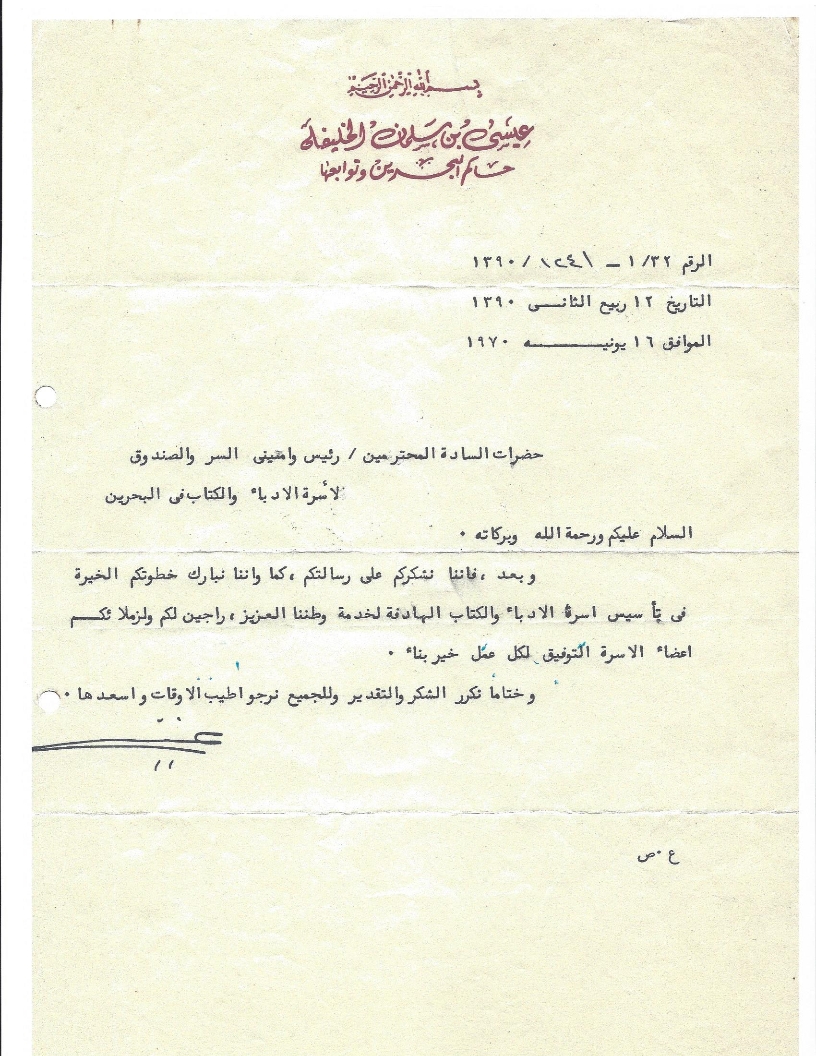 بسم الله الرحمن الرحيم
عيسى بن سلمان الخليفة
حاكم البحرين وتوابعها
الرقم ١/٣٢ – ١٢٤١ / ١٣٩٠
التاريخ ١٢ ربيع الثانى ١٣٩٠
الموافق ١٦ يونيه ١٩٧٠
حضرات السادة المحترمين / رئيس وامينى السر والصندوق
لأسرة الادباء والكتاب فى البحرين
السلام عليكم ورحمة الله وبركاته ٠
وبعد ، فاننا نشكركم على رسالتكم ، كما واننا نبارك خطوتكم الخيرة
فى تأسيس اسرة الادباء والكتاب الهادفة لخدمة وطننا العزيز ، راجين لكم ولزملائكم
اعضاء الاسرة التوفيق لكل عمل خير بناء ٠
وختاما نكرر الشكر والتقدير وللجميع نرجو اطيب الاوقات واسعدها ٠
ع ٠ ص